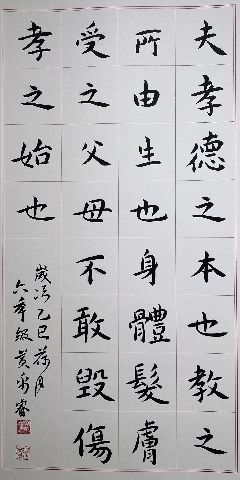 夫孝德之本也教之
所由生也身體髮膚
受之父母不敢毀傷
孝之始也
歲次乙巳荷月
六年級黃